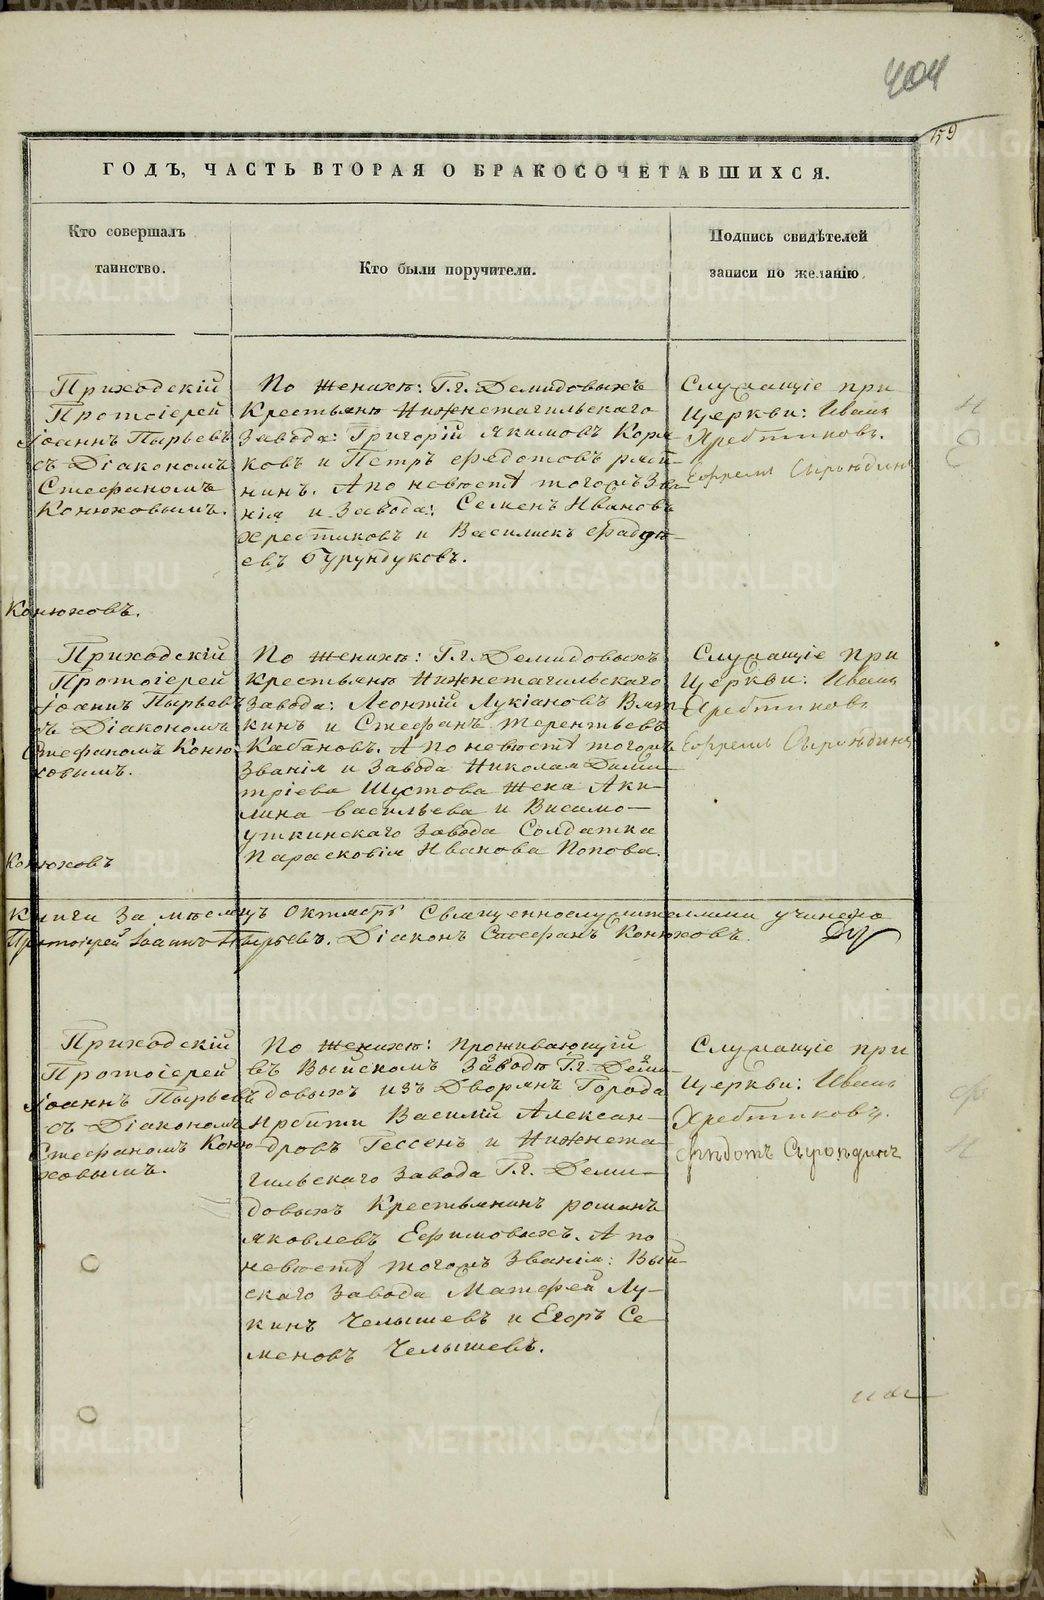 404
59
ГОДЪ, ЧАСТЬ ВТОРАЯ О БРАКОСОЧЕТАВШИХСЯ.
Кто совершалъ
таинство.
Кто были поручители.
Подпись свидѣтелей
записи по желанію.
Приходскій
Протоіерей
Іоаннъ Пырьевъ
съ Діакономъ
Стефаномъ
Конюховымъ.
Конюховъ.
По женихѣ: Г.г. Демидовыхъ
Крестьяне Нижнетагильскаго
Завода: Григорій Якимовъ Корж-
ковъ и Петръ Федотовъ
нинъ. А по невѣстѣ тогожъ Зва-
нія и Завода: Семенъ Ивановъ
Хребтиковъ и Василискъ Фадѣ-
евъ Бурундуковъ.
Служащіе при
Церкви: Иванъ
Хребтиковъ.
Ефремъ Сыромдинъ
Приходскій
Протоіерей
Іоаннъ Пырьевъ
съ Діакономъ
Стефаномъ Коню-
ховымъ.
Конюховъ
По женихѣ: Г.г. Демидовыхъ
Крестьяне Нижнетагильскаго
Завода: Леонтій Лукіановъ Вят-
кинъ и Стефанъ Терентьевъ
Кабановъ. А по невѣстѣ тогожъ
Званія и Завода Николая Дими-
тріева Шустова жена Аку-
лина Васильева и Висимо-
уткинскаго Завода Солдатка
Парасковія Иванова Попова.
Служащіе при
Церкви: Иванъ
Хребтиковъ
Ефремъ
Книги За мѣсяцъ Октябрь Священнослужителями учинено
Протоіерей Іоаннъ Пырьевъ. Діаконъ Стефанъ Конюховъ.
Приходскій
Протоіерей
Іоаннъ Пырьевъ
съ Діакономъ
Стефаномъ Коню-
ховымъ.
По женихѣ: проживающій
въ Выйскомъ Заводѣ Г.г. Деми-
довыхъ изъ Дворянъ Города
Ирбити Василій Алексан-
дровъ Гессенъ и Нижнета-
гильскаго Завода Г.г. Деми-
довыхъ Крестьянинъ романъ
Яковлевъ Ефимовыхъ. А по
невѣстѣ тогожъ Званія: Вый-
скаго Завода Матфей Лу-
кинъ Челышевъ и Егоръ Се-
меновъ Челышевъ.
Служащіе при
Церкви: Иванъ
Хребтиковъ.
METRIKI.GASO-URAL.RU